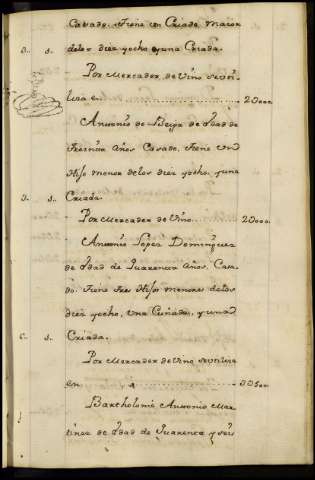 Casado. Tiene un Criado maior
D.. s.. delos diez yocho, y una Criada.
Por Mercader, de Vino se
en 20000
Antonio de de Edad de
Años Casado, Tiene un
Hijo menor delos diez yocho, y una
D.. s.. Criada.
Por Mercader de Vino 20000
Antonio Lopez Dominguez
de Edad de Quarenta años, Casa
do, Tiene tres Hijos menores delos
diez yocho, Una Cuñada, y una
C.. s.. Criada.
Por Mercader de Vino
en
Bartholomé Antonio Mar
tinez de Edad de Quarenta y seis